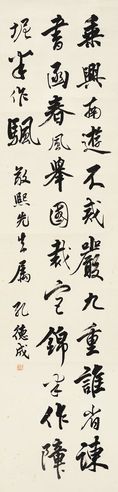 乘興南遊不戒嚴九重誰省諫
書函春風舉國裁宮錦半作障
泥半作驅
敬熙先生屬 孔德成